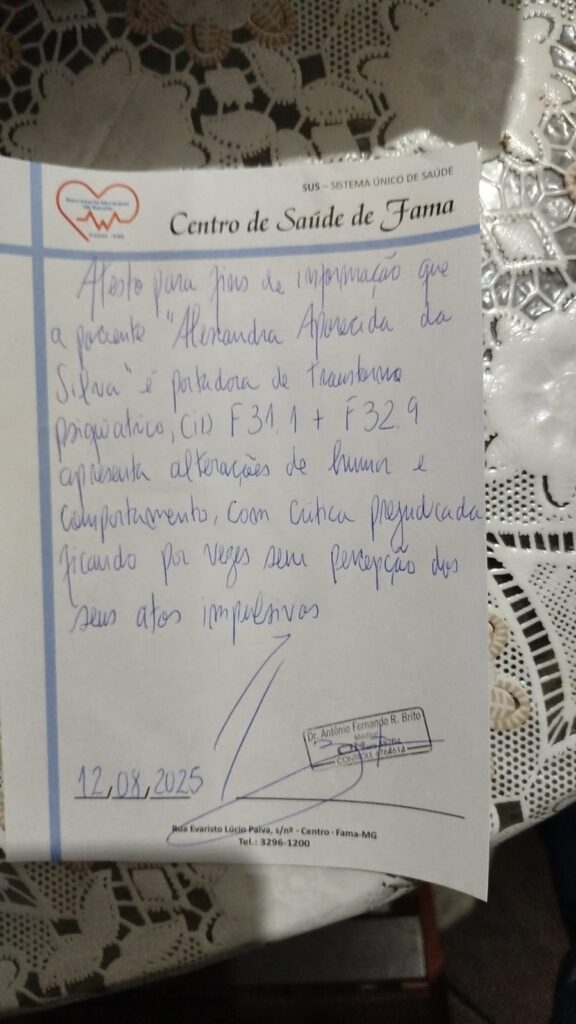 SUS – SISTEMA ÚNICO DE SAÚDE
Centro de Saúde de Fama
Atesto para fins de informação que
a paciente "Alessandra Aparecida da
Silva" é portadora de transtorno
psiquiátrico, CID F31.1 + F32.9
apresenta alterações de humor e
comportamento, com crítica prejudicada
ficando por vezes sem percepção dos
seus atos impulsivos
Dr. Antônio Fernando R. Brito
Médico
12,08,2025
Rua Evaristo Lúcio Paiva, s/nº - Centro - Fama-MG
Tel.: 3296-1200